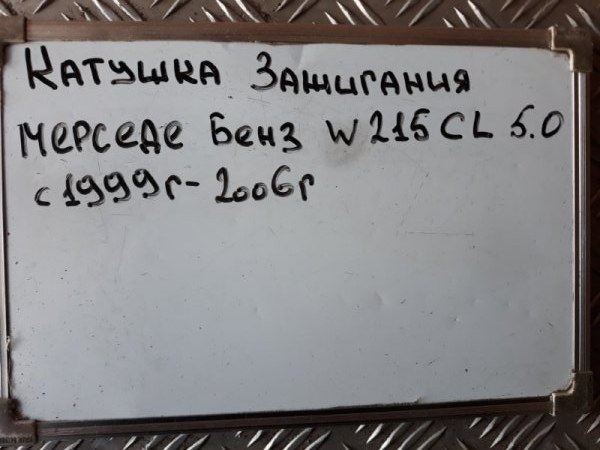 Катушка Зажигания
Мерседе Бенз W215 CL 5.0
с 1999г-2006г